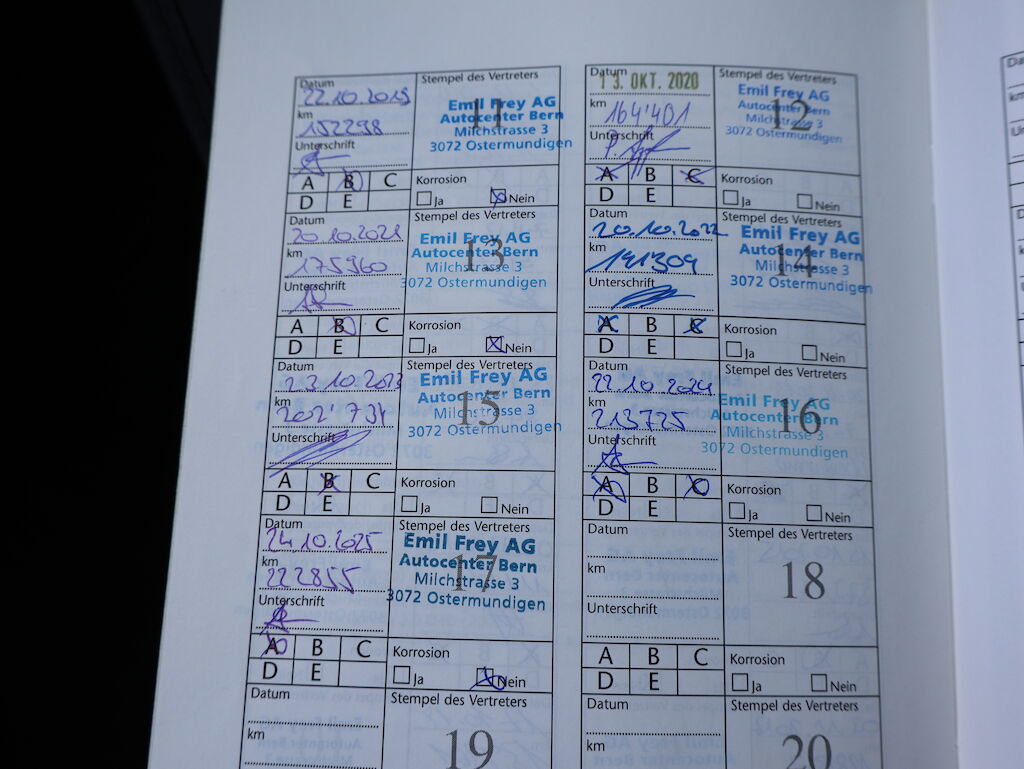 Datum
22.10.2019
km
152298
Unterschrift
Stempel des Vertreters
11
Emil Frey AG
Autocenter Bern
Milchstrasse 3
3072 Ostermundigen
A B C
D E
Korrosion
Ja Nein
Datum
13. OKT. 2020
km
164'401
Unterschrift
Stempel des Vertreters
12
Emil Frey AG
Autocenter Bern
Milchstrasse 3
3072 Ostermundigen
A B C
D E
Korrosion
Ja Nein
Datum
20.10.2021
km
175960
Unterschrift
Stempel des Vertreters
13
Emil Frey AG
Autocenter Bern
Milchstrasse 3
3072 Ostermundigen
A B C
D E
Korrosion
Ja Nein
Datum
20.10.2022
km
191309
Unterschrift
Stempel des Vertreters
14
Emil Frey AG
Autocenter Bern
Milchstrasse 3
3072 Ostermundigen
A B C
D E
Korrosion
Ja Nein
Datum
23.10.2023
km
202'734
Unterschrift
Stempel des Vertreters
15
Emil Frey AG
Autocenter Bern
Milchstrasse 3
3072 Ostermundigen
A B C
D E
Korrosion
Ja Nein
Datum
22.10.2024
km
213725
Unterschrift
Stempel des Vertreters
16
Emil Frey AG
Autocenter Bern
Milchstrasse 3
3072 Ostermundigen
A B C
D E
Korrosion
Ja Nein
Datum
24.10.2025
km
222855
Unterschrift
Stempel des Vertreters
17
Emil Frey AG
Autocenter Bern
Milchstrasse 3
3072 Ostermundigen
A B C
D E
Korrosion
Ja Nein
Datum
km
Unterschrift
Stempel des Vertreters
18
A B C
D E
Korrosion
Ja Nein
Datum
km
Stempel des Vertreters
19
Datum
km
Stempel des Vertreters
20